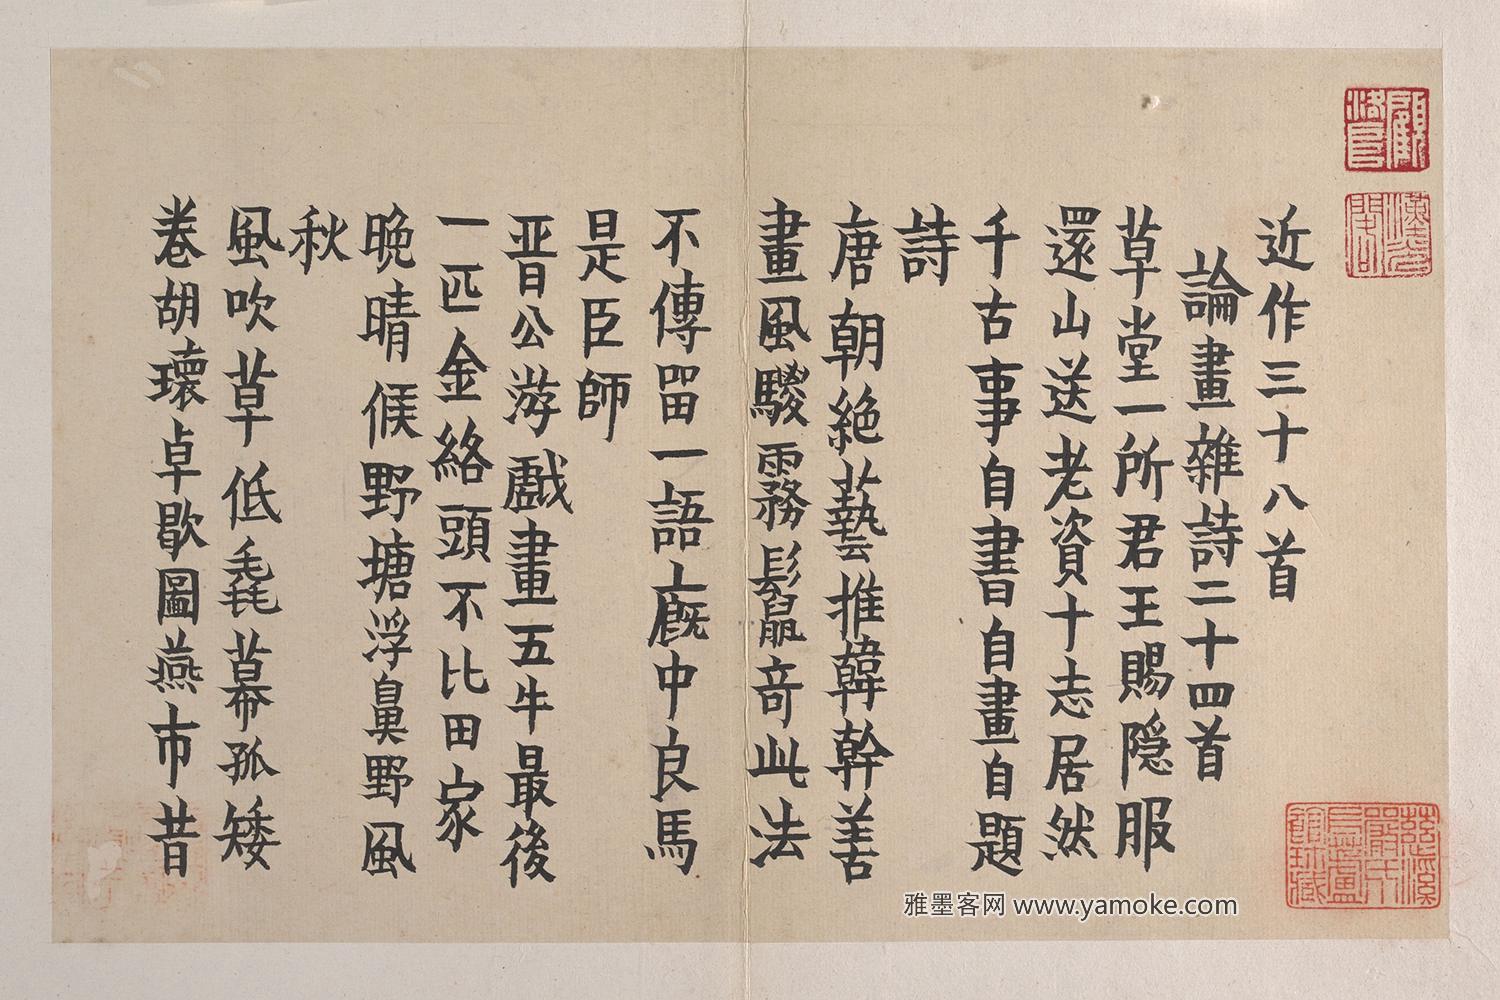 近作三十八首
論畫雜詩二十四首
草堂一所君王賜隠服
還山送老資十志居然
千古事自書自畫自題
詩
唐朝絶藝推韓幹善
畫風騣霧鬛竒此法
不傳留一語廐中良馬
是臣師
晋公游戲畫五牛最後
一匹金絡頭不比田家
晩晴候野塘浮鼻野風
秋
風吹草低毳幕孤矮
卷胡瓌卓歇圖燕市昔
雅墨客网 www.yamoke.com